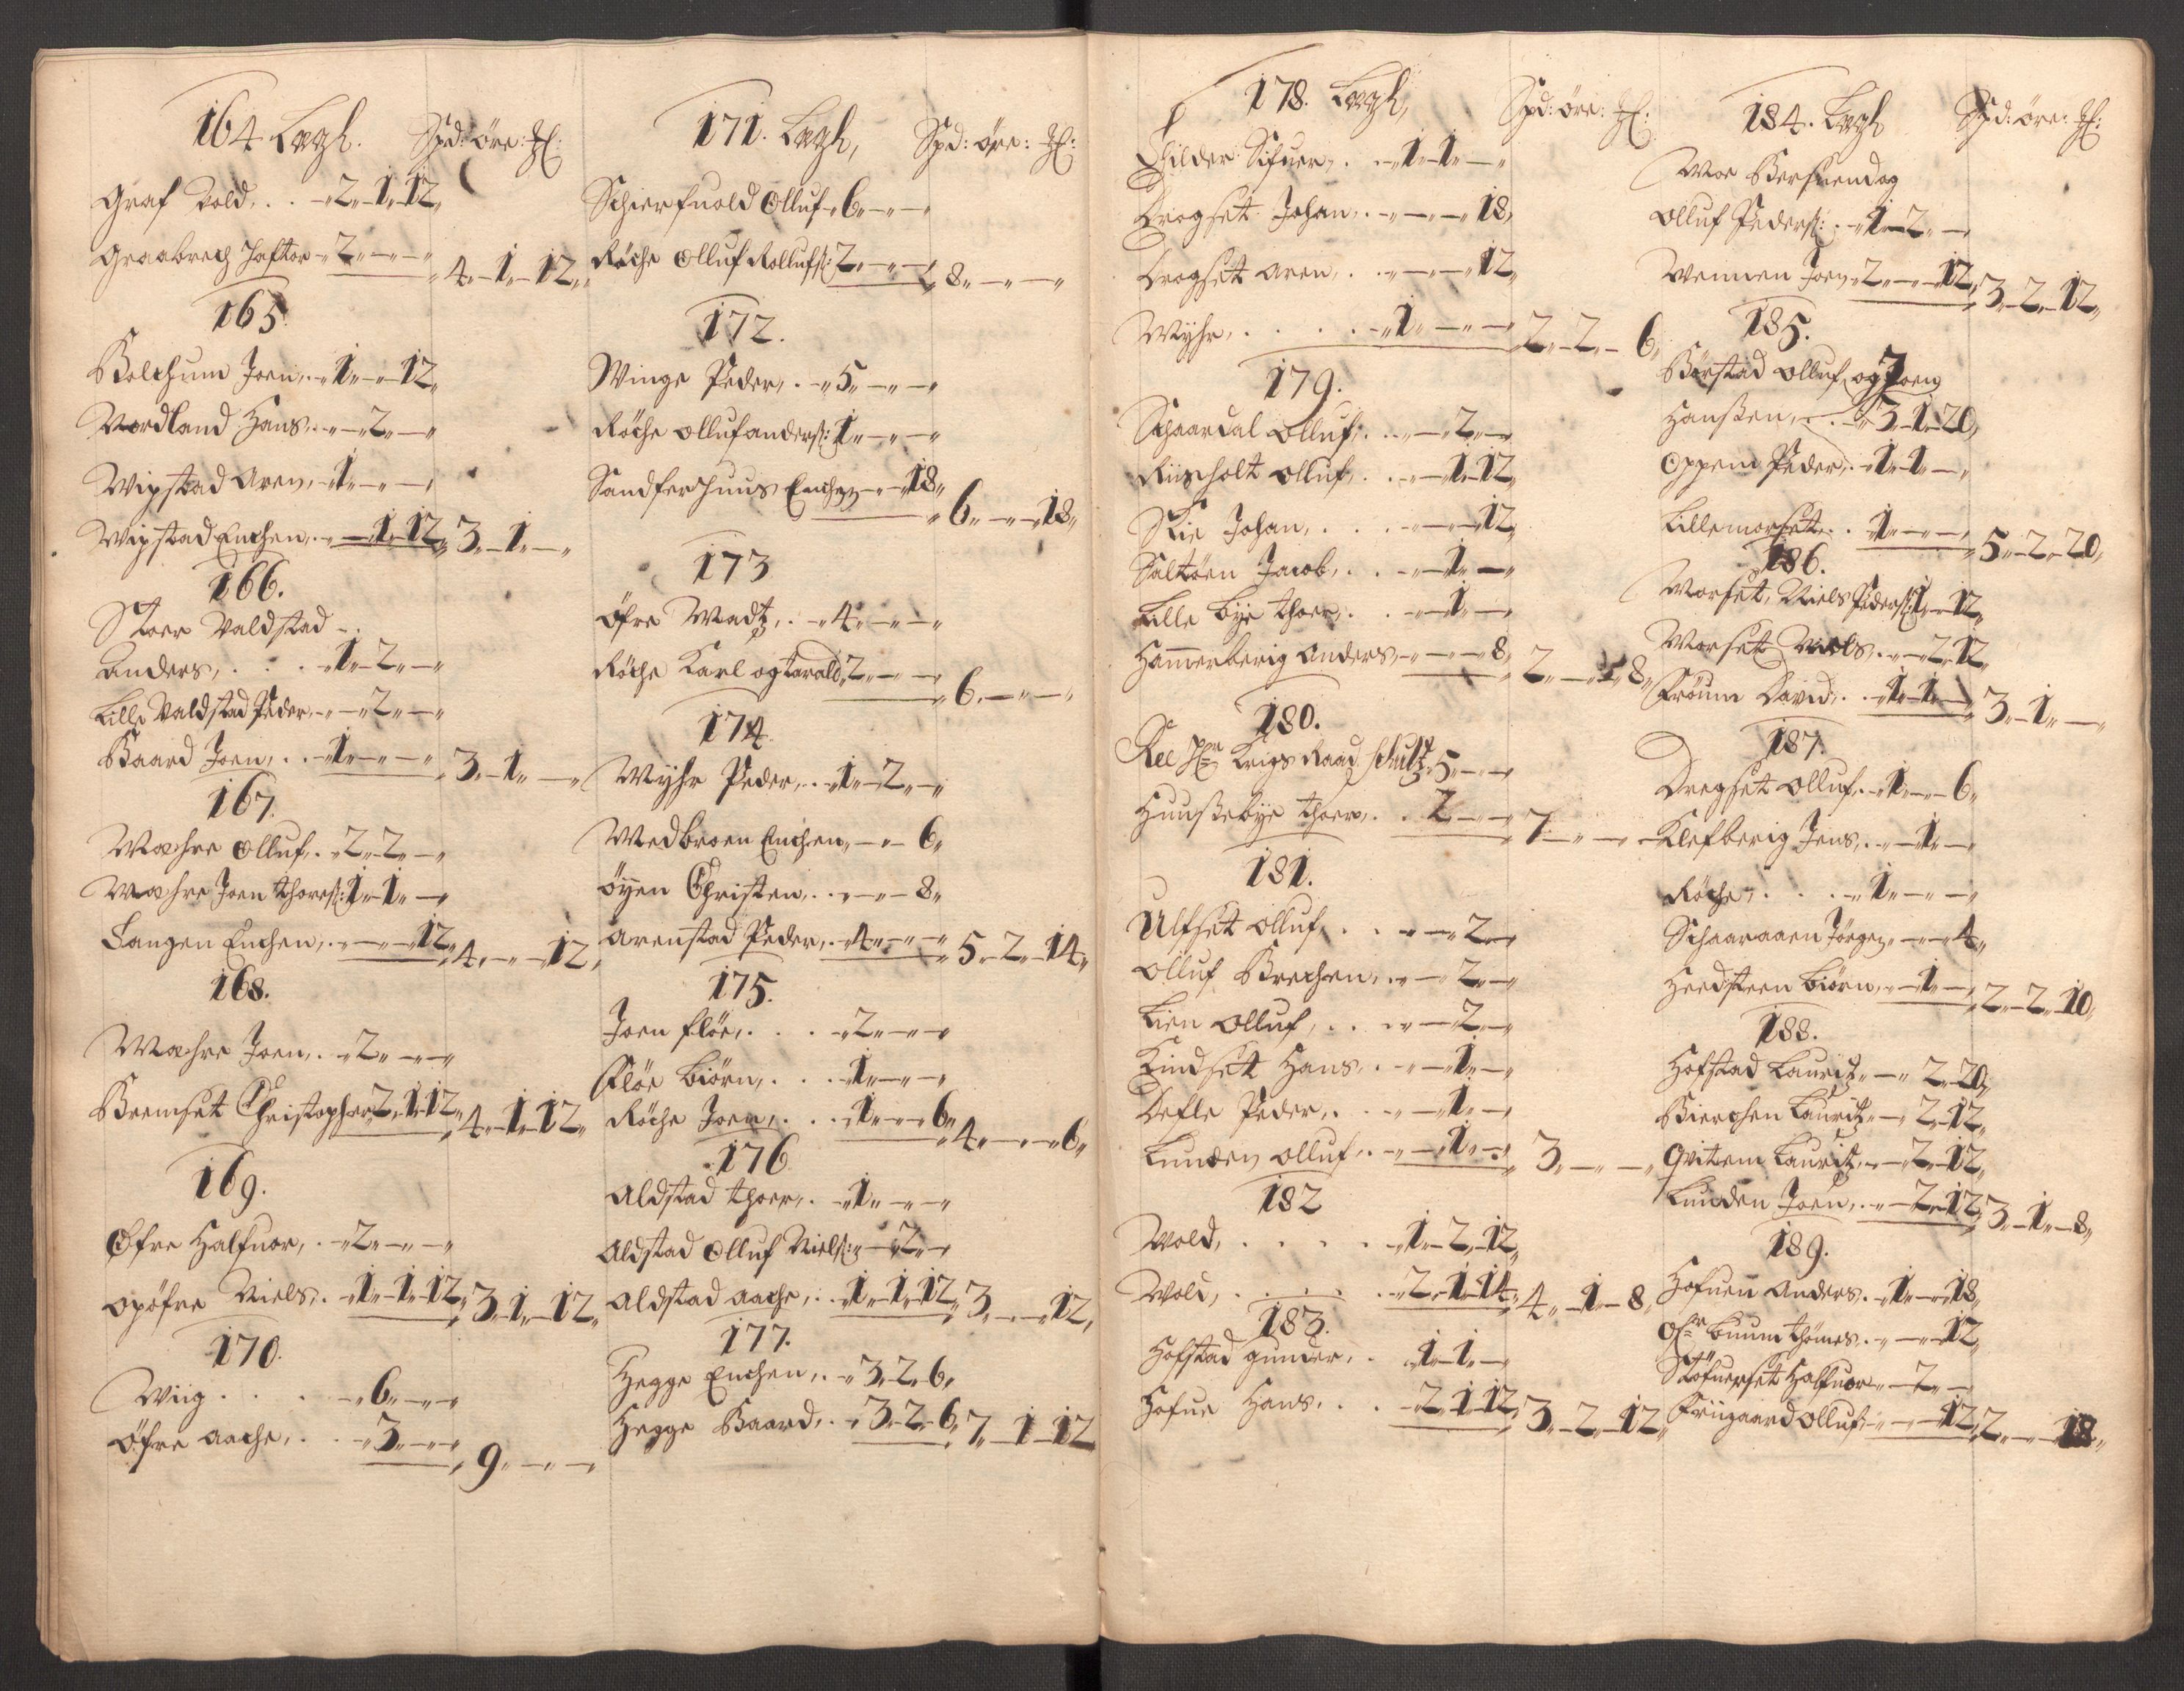 164 Lægh. Spd: öre: 
Graf Told, . . -„2„-1„-12„
Graabrech Joftor -2„-„-„ 4„-1„-12„
165
Bolchum Joen, „1„-„-12„
Nordland Hans. -„-2„-„
Wipstad Aren, -1„-„-„
Wipstad Enchen, „-1„12„ 3„-1„-„
166.
Stoer Valdstad -
Anders, . . . -1„-2„-„
Lille Valdstad Peder, -„-2„-„
Baard Joen, . . -1„-„-„ 3„-1„-„
167.
Wæhre Olluf. -2„-2„-„
Wæhre Joen Thores: 1„-1„-„
Langen Enchen, . -„-„-12„ 4„-„-12„
168.
Wæhre Joen, . -2„-„-„
Bremset Christopher 2„-1„-12„ 4„-1„-12„
169.
Öfre Halfuor, . -2„-„-„
Opöfre Niels, -1„-1„-12„ 3„-1„-12„
170.
Wiig . . . -6„-„-„
Öfre Aache, . . -3„-„-„ 9„-„-„
171. Lægh, Spd: öre: 
Schierfuold Olluf -6„-„-„
Röche Olluf Rollufs: 2„-„-„ 8„-„-„
172.
Winge Peder, . -5„-„-„
Röche Olluf Anders: 1„-„-„
Sandferhuus Enchen -„-18„ 6„-„-18„
173
Öfre Madtz, . -4„-„-„
Röche Karl og Tarald, 2„-„-„ 6„-„-„
174
Wÿhr Peder, . -1„-2„-„
Medbroen Enchen, -„-6„
Öÿen Christen, . -„-„-8„
Arenstad Peder, . -4„-„-„ 5„-2„-14„
175.
Joen Flöe, . . . -2„-„-„
Flöe Biörn, . . . -1„-„-„
Röche Joen, . . . -1„-„-6„ 4„-„-6„
176
Aldstad Thoer, . -1„-„-„
Aldstad Olluf Niels: -„2„-„
Aldstad Aache, . . -1„-1„-12„ 3„-„-12„
177.
Hegge Enchen, . -3„-2„-6„
Hegge Baard, . -3„-2„-6„ 7„-1„-12
178. Lægh, Spd: öre: 
Childer Sifuer, . -1„-1„-„
Drogset Johan, . -„-„-18„
Drogset Aren, . . -„-„-12„
Wÿhr, . . . . -1„-„-„ 2„-2„-6„
179.
Schaardal Olluf, . . -„-2„-„
Riisholt Olluf, . . -„-1„-12„
Skie Johan, . . . -„-„-12„
Saltöen Jacob, . . -„-1„-„
Lille Bÿe Thoer, . . -„-1„-„
Hammerberig Anders, -„-„-8„ 2„-„-8„
180.
Ree Hr Krigs Raad Schultz 5„-„-„
Huusseböÿe Thoer, . . 2„-„-„ 7„-„-„
181.
Ulfset Olluf, . . -„-2„-„
Olluf Brechen, . -„-2„-„
Lien Olluf, . . . -„-2„-„
Kindset Hans, . -„-1„-„
Defle Peder, . . -„-1„-„
Lunden Olluf, . -„-1„-„ 3„-„-„
182
Wold, . . . . -1„-2„-12„
Wold, . . . . -2„-1„14„ 4„-1„-8„
183.
Hofstad Gunder, . 1„-1„-„
Hofue Hans, . . -2„-1„-12„ 3„-2„-12„
184. Lægh Spd: öre: 
Moe Bersuend og
Olluf Peders: -1„-2„-„
Mennen Joen 2„-„-12„ 3„-2„-12„
185.
Börstad Olluf, og Joen
Hanssen, . . -3„-1„-20„
Oppem Peder, . -1„-1„-„
Lillemorset . . 1„-„-„ 5„-2„-20„
186.
Morset, Niels Peders: 1„-„12„
Morset Niels. -„-2„-12„
Fröum David, . . -1„-1„-„ 3„-1„-„
187.
Dregset Olluf, -1„-„-6„
Klefberig Jens, . -„-1„-„
Röche, . . . -1„-„-„
Schaaraaen Jörgen -„-„-4„
Hendsteen Biörn, -„-1„-„ 2„-2„-10„
188.
Hofstad Lauritz, -„-2„-20„
Bierchen Lauritz, -„-2„-12„
Qvitem Lauritz, -„-2„-12„
Lunden Joen, . -„-2„-12„ 3„-1„-8„
189.
Hofuen Anders. -1„-„-18„
Buum Thomes. -„-„-12„
Stöfuerset Halfuor -„-2„-„
Friigaard Olluf, -„-„-12„ 2„-„-18„